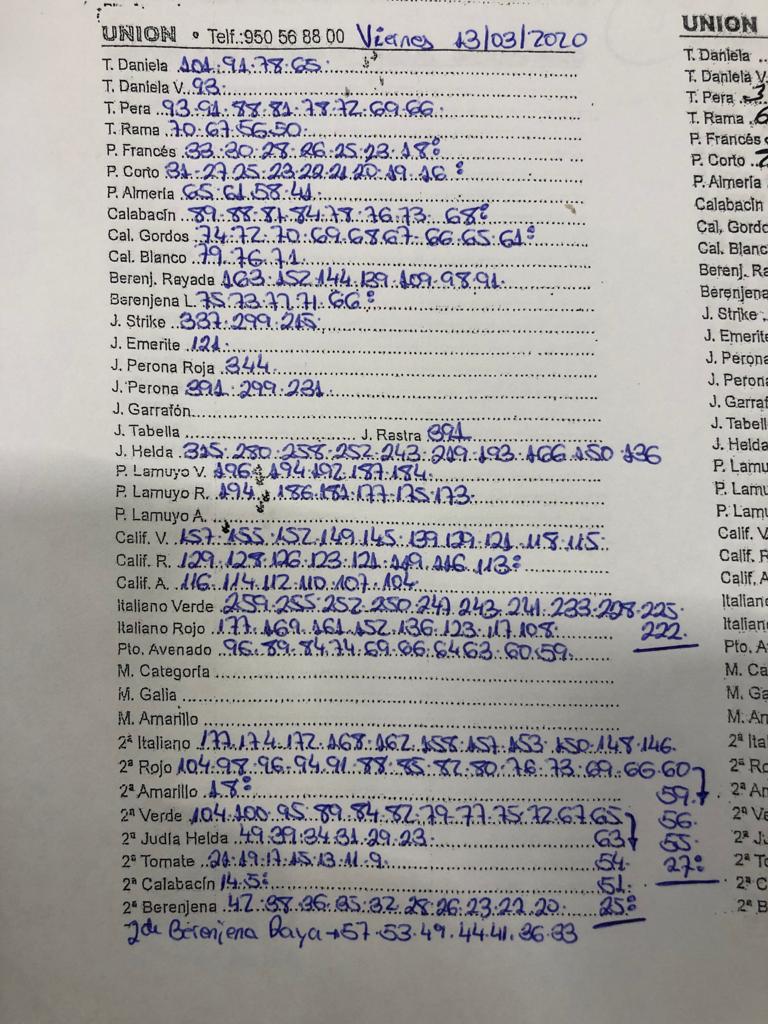 UNION • Telf.:950 56 88 00 Viernes 13/03/2020
T. Daniela 101.91.78.65.
T. Daniela V. 93.
T. Pera 93.91.88.81.78.72.69.66.
T. Rama 70.67.56.50.
P. Francés 33.30.28.26.25.23.18:
P. Corto 31.27.25.23.22.21.20.19.16:
P. Almería 65.61.58.41.
Calabacín 89.88.87.84.78.76.73. 68:
Cal. Gordos 74.72.70.69.68.67.66.65.61:
Cal. Blanco 79.76.71
Berenj. Rayada 163.152.144.139.109.98.91.
Berenjena L. 75.73.72.71.66:
J. Strike 337.299.215.
J. Emerite 121.
J. Perona Roja 344.
J. Perona 391.299.231.
J. Garrafón
J. Tabella J. Rastra 391
J. Helda 315.280.258.252.243.219.193.166.150.136
P. Lamuyo V. 196.194.192.187.184.
P. Lamuyo R. 194.186.181.177.175.173.
P. Lamuyo A.
Calif. V. 157.155.152.149.145.139.129.121.118.115.
Calif. R. 129.128.126.123.121.119.116.113:
Calif. A. 116.114.112.110.107.104
Italiano Verde 259.255.252.250.247.243.241.233.228.225.
Italiano Rojo 177.169.161.152.136.123.117.108. 222.
Pto. Avenado 96.89.84.74.69.66.64.63.60.59.
M. Categoría
M. Galia
M. Amarillo
2ª Italiano 177.174.172.168.162.158.157.153.150.148.146.
2ª Rojo 104.98.96.94.91.88.85.82.80.76.73.69.66.60
2ª Amarillo 18: 59.
2ª Verde 104.100.95.89.84.82.79.77.75.72.67.65 56.
2ª Judía Helda 49.39.34.31.29.23. 63 55.
2ª Tomate 21.19.17.15.13.11.9. 54. 27:
2ª Calabacín 14.5: 51.
2ª Berenjena 42.38.36.35.32.28.26.23.22.20. 25:
2da Berenjena Raya → 57.53.49.44.41.36.33
UNION
T. Daniela
T. Daniela V
T. Pera
T. Rama
P. Francés
P. Corto
P. Almería
Calabacín
Cal. Gordo
Cal. Blanc
Berenj. Ra
Berenjena
J. Strike
J. Emerite
J. Perona
J. Perona
J. Garraf
J. Tabell
J. Helda
P. Lamu
P. Lamu
P. Lamu
Calif. V
Calif. R
Calif. A
Italian
Italian
Pto. A
M. Ca
M. Ga
M. An
2ª Ita
2ª Ro
2ª An
2ª Ve
2ª Ju
2ª To
2ª C
2ª B